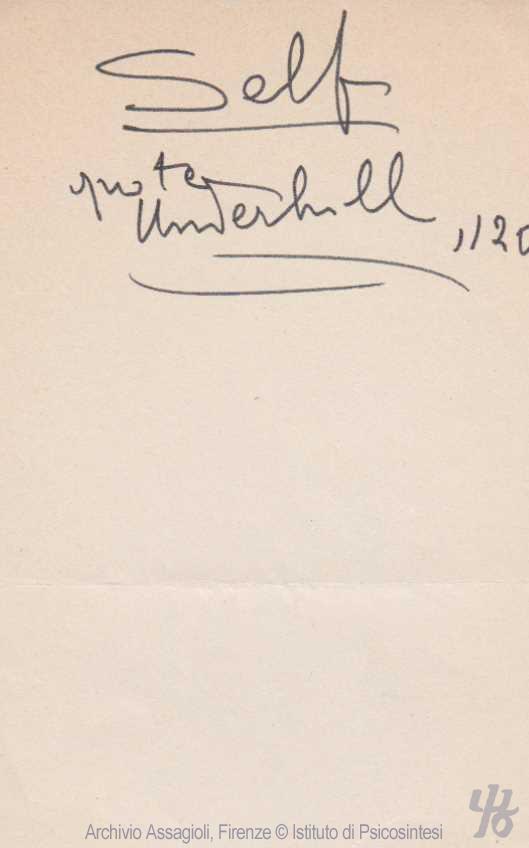 Self
quote
Underhill ,120
Archivio Assagioli, Firenze © Istituto di Psicosintesi